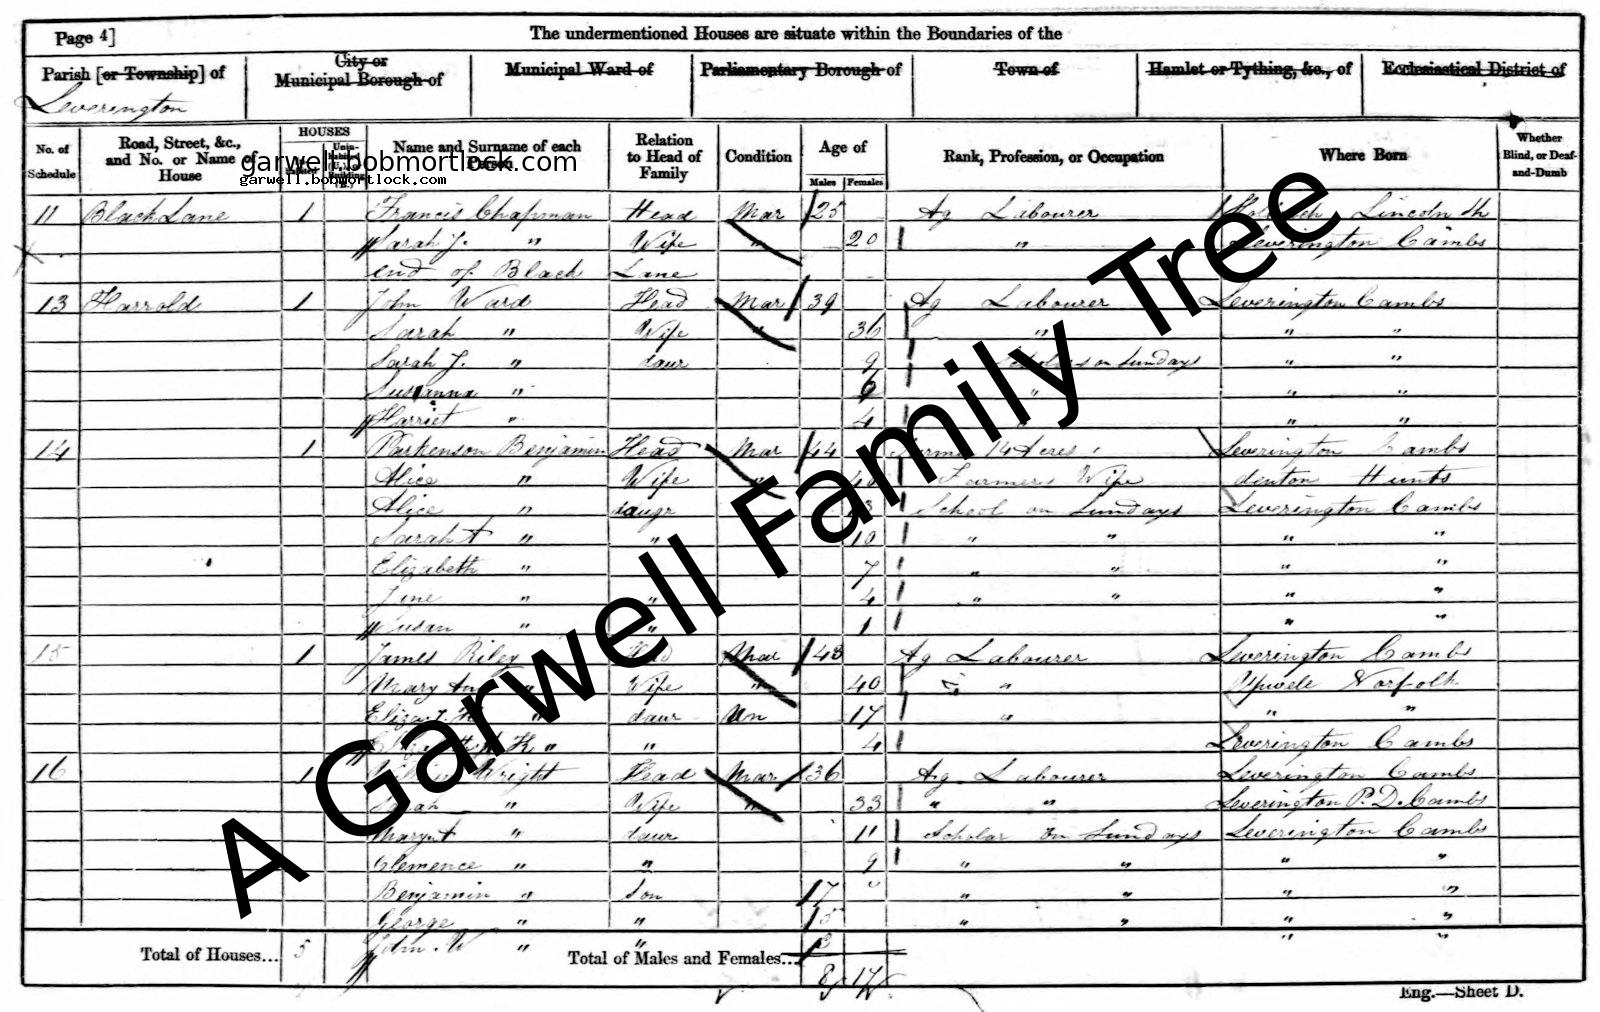 Page 4]
The undermentioned Houses are situate within the Boundaries of the
Parish [or Township] of
Leverington
City or Municipal Borough of
Municipal Ward of
Parliamentary Borough of
Town of
Hamlet or Tything, &c., of
Ecclesiastical District of
No. of Schedule
Road, Street, &c., and No. or Name of House
HOUSES
Name and Surname of each Person
Relation to Head of Family
Condition
Age of
Males Females
Rank, Profession, or Occupation
Where Born
Whether Blind, or Deaf-and-Dumb
garwell.bobmortlock.com
garwell.bobmortlock.com
11 Black Lane 1 Francis Chapman Head Mar 25 Ag Labourer Lincoln Sh
Sarah J. " Wife " 20 " Leverington Cambs
end of Black Lane
13 Harrold 1 John Ward Head Mar 39 Ag Labourer Leverington Cambs
Sarah " Wife " 36 " " "
Sarah J. " daur 9 on Sundays " "
Susanna " 6 " " "
Harriet " 4 " "
14 1 Parkenson Benjamin Head Mar 44 14 Acres Leverington Cambs
Alice " Wife " Farmers Wife denton Hunts
Alice " daugr School on Sundays Leverington Cambs
Sarah A " " 10 " " " "
Elizabeth " 7 " " " "
Jane " " 4 " " " "
Susan " " 1 " "
15 1 James Riley Head Mar 48 Ag Labourer Leverington Cambs
Mary An " Wife " 40 " " Upwell Norfolk
Eliza " daur Un 17 " " "
" " 4 Leverington Cambs
16 1 Wright Head Mar 36 Ag Labourer Leverington Cambs
Sarah " Wife " 33 " " Leverington P. D. Cambs
Mary A " daur 11 Scholar on Sundays Leverington Cambs
Clemence " " 9 " " " "
Benjamin " Son 7 " " " "
George " " 5 " " " "
John W " " " "
Total of Houses... 5 Total of Males and Females... 8 17
Eng.—Sheet D.
A Garwell Family Tree